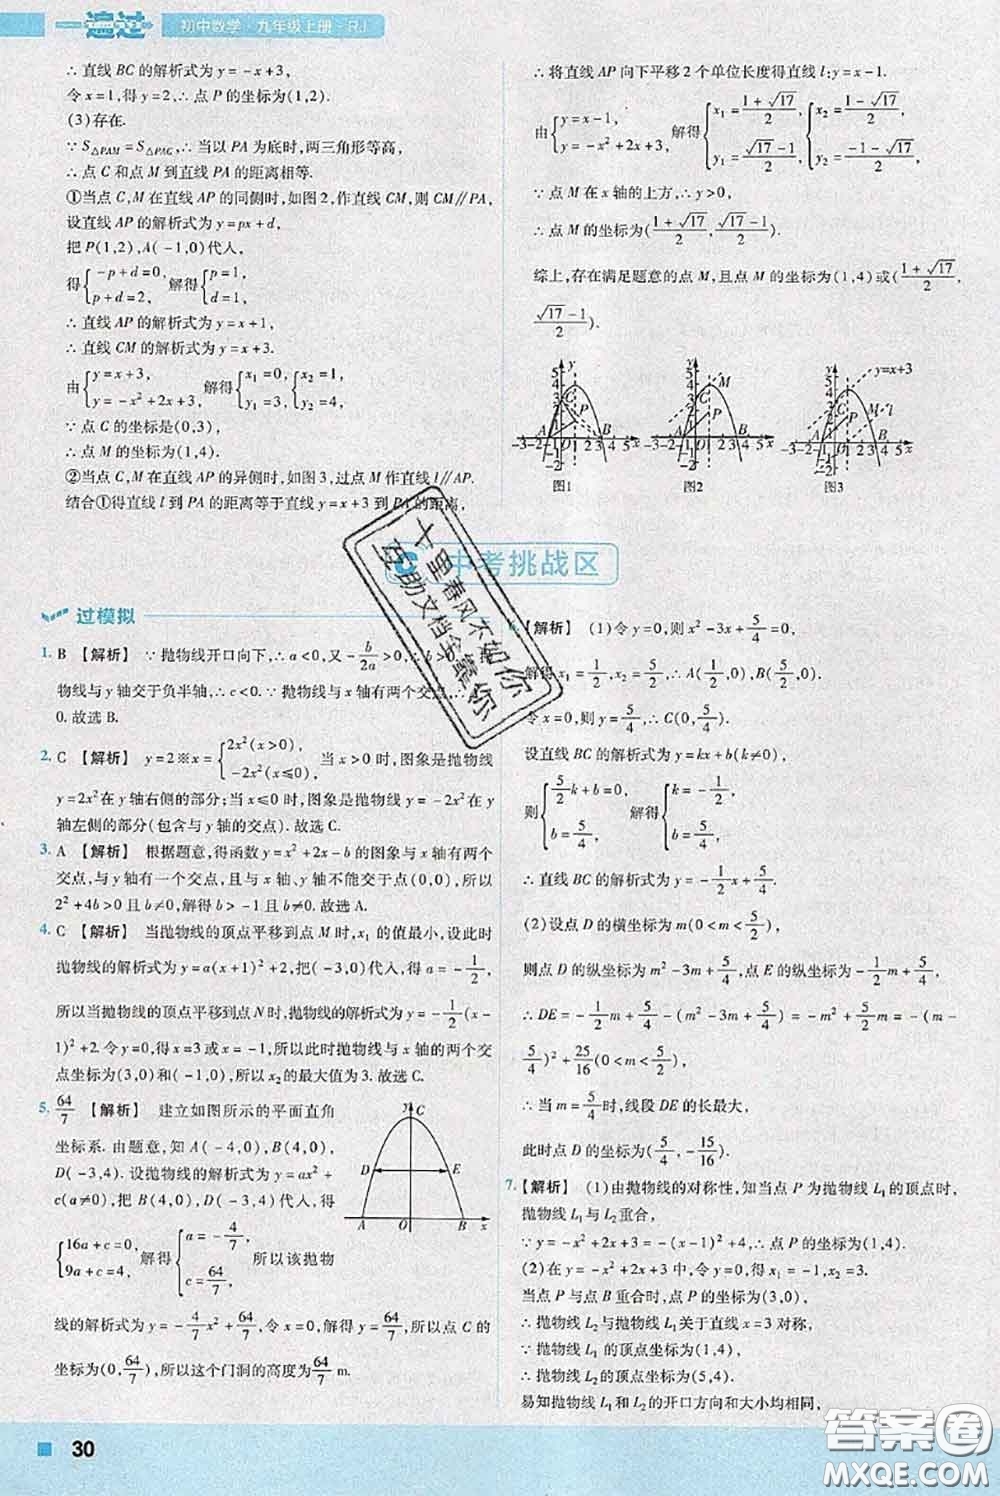 一遍过 初中数学·九年级上册·RJ
∴ 直线 BC 的解析式为 y=-x+3,
令 x=1,得 y=2,∴ 点 P 的坐标为(1,2).
(3)存在.
∵ S△PAM=S△PAC,∴ 当以 PA 为底时,两三角形等高,
∴ 点 C 和点 M 到直线 PA 的距离相等.
①当点 C,M 在直线 AP 的同侧时,如图 2,作直线 CM,则 CM∥PA,
设直线 AP 的解析式为 y=px+d,
把 P(1,2),A(-1,0)代入,
得{-p+d=0, p+d=2, 解得{p=1, d=1.
∴ 直线 AP 的解析式为 y=x+1,
∴ 直线 CM 的解析式为 y=x+3.
由{y=x+3, y=-x²+2x+3, 解得{x₁=0, y₁=3, {x₂=1, y₂=4,
∵ 点 C 的坐标是(0,3),
∴ 点 M 的坐标为(1,4).
②当点 C,M 在直线 AP 的异侧时,如图 3,过点 M 作直线 l∥AP.
结合①得直线 l 到 PA 的距离等于直线 y=x+3 到 PA 的距离,
∴ 将直线 AP 向下平移 2 个单位长度得直线 l:y=x-1.
由{y=x-1, y=-x²+2x+3, 解得{x₁=(1+√17)/2, y₁=(√17-1)/2, {x₂=(1-√17)/2, y₂=(-1-√17)/2,
∵ 点 M 在 x 轴的上方,∴ y>0,
∴ 点 M 的坐标为((1+√17)/2,(√17-1)/2).
综上,存在满足题意的点 M,且点 M 的坐标为(1,4)或((1+√17)/2,
(√17-1)/2).
图1 图2 图3
C 中考挑战区
过模拟
1. B 【解析】 ∵ 抛物线开口向下,∴ a<0,又 -b/2a>0,∴ b>0
物线与 y 轴交于负半轴,∴ c<0.∵ 抛物线与 x 轴有两个交点,∴
0.故选 B.
2. C 【解析】 y=2※x={2x²(x>0), -2x²(x≤0), 当 x>0 时,图象是抛物线
y=2x²在 y 轴右侧的部分;当 x≤0 时,图象是抛物线 y=-2x²在 y
轴左侧的部分(包含与 y 轴的交点).故选 C.
3. A 【解析】 根据题意,得函数 y=x²+2x-b 的图象与 x 轴有两个
交点,与 y 轴有一个交点,且与 x 轴、y 轴不能交于点(0,0),所以
2²+4b>0 且 b≠0,解得 b>-1 且 b≠0.故选 A.
4. C 【解析】 当抛物线的顶点平移到点 M 时,x₁ 的值最小,设此时
抛物线的解析式为 y=a(x+1)²+2,把(-3,0)代入,得 a=-1/2,
所以当抛物线的顶点平移到点 N 时,抛物线的解析式为 y=-1/2(x-
1)²+2.令 y=0,得 x=3 或 x=-1,所以此时抛物线与 x 轴的两个交
点坐标为(3,0)和(-1,0),所以 x₂ 的最大值为 3.故选 C.
5. 64/7 【解析】 建立如图所示的平面直角
坐标系. 由题意,知 A(-4,0),B(4,0),
D(-3,4). 设抛物线的解析式为 y=ax²+
c(a≠0),把 B(4,0),D(-3,4)代入,得
{16a+c=0, 9a+c=4, 解得{a=-4/7, c=64/7, 所以该抛物
线的解析式为 y=-4/7x²+64/7,令 x=0,解得 y=64/7,所以点 C 的
坐标为(0,64/7),所以这个门洞的高度为64/7 m.
【解析】 (1)令 y=0,则 x²-3x+5/4=0,
解得 x₁=1/2,x₂=5/2,∴ A(1/2,0),B(5/2,0).
令 x=0,则 y=5/4,∴ C(0,5/4).
设直线 BC 的解析式为 y=kx+b(k≠0),
则{5/2k+b=0, b=5/4, 解得{k=-1/2, b=5/4,
∴ 直线 BC 的解析式为 y=-1/2x+5/4.
(2)设点 D 的横坐标为 m(0<m<5/2),
则点 D 的纵坐标为 m²-3m+5/4,点 E 的纵坐标为-1/2m+5/4,
∴ DE=-1/2m+5/4-(m²-3m+5/4)=-m²+5/2m=-(m-
5/4)²+25/16(0<m<5/2),
∴ 当 m=5/4时,线段 DE 的长最大,
此时点 D 的坐标为(5/4,-15/16).
7. 【解析】 (1)由抛物线的对称性,知当点 P 为抛物线 L₁ 的顶点时,
抛物线 L₁与 L₂重合,
∵ y=-x²+2x+3=-(x-1)²+4,∴ 点 P 的坐标为(1,4).
(2)在 y=-x²+2x+3 中,令 y=0,得 x₁=-1,x₂=3.
当点 P 与点 B 重合时,点 P 的坐标为(3,0),
∴ 抛物线 L₂与抛物线 L₁关于直线 x=3 对称,
∵ 抛物线 L₁ 的顶点坐标为(1,4),
∴ 抛物线 L₂ 的顶点坐标为(5,4).
易知抛物线 L₁和 L₂ 的开口方向和大小均相同,
十里春风不如你
互助文档全靠你
30
答案圈
MXQE.COM